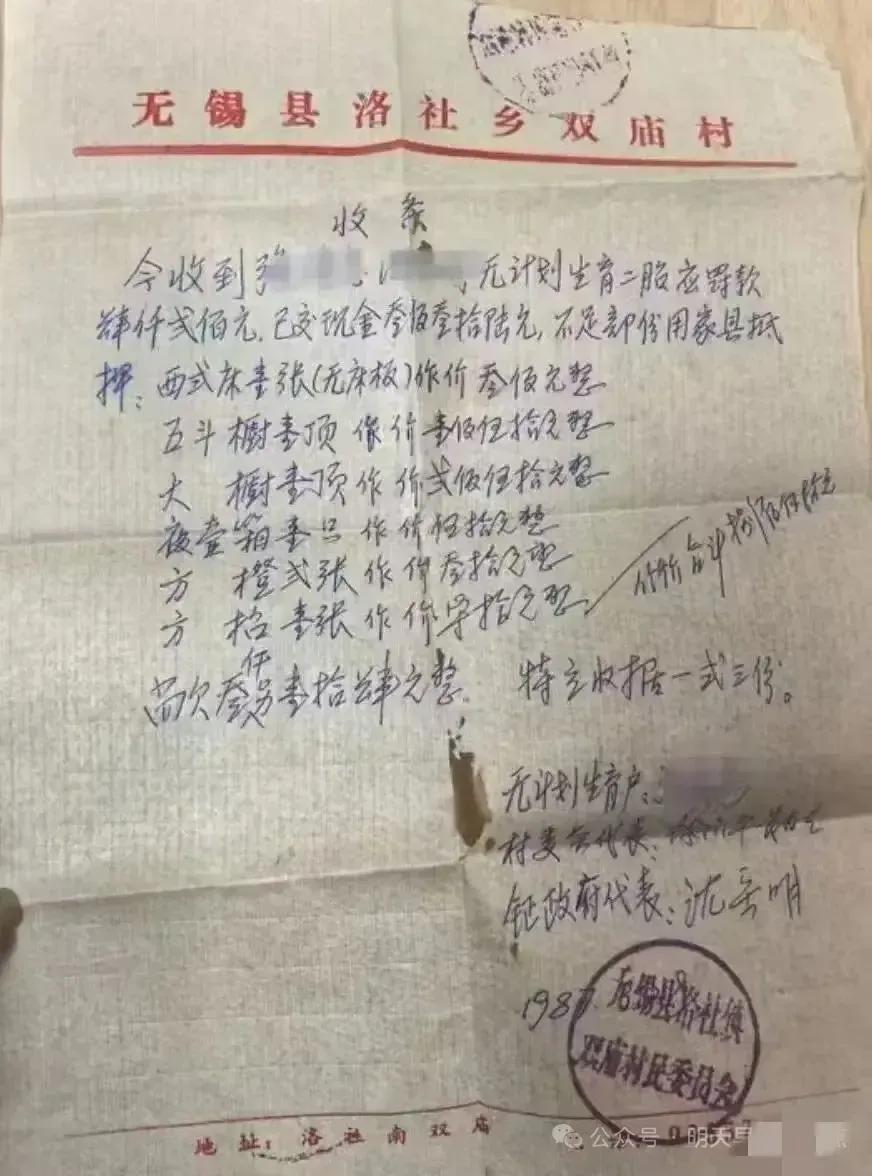 无锡县洛社乡双庙村
收条
今收到张 无计划生育二胎应罚款
肆仟弍佰元，已交现金叁佰叁拾陆元，不足部份用家具抵
押：西式床壹张(无床板)作价叁佰元整
五斗橱壹顶作价壹佰伍拾元整
大橱壹顶作价弍佰伍拾元整
夜壹箱壹只作价伍拾元整
方橙弍张作价叁拾元整
方 壹张作价 拾元整
作价合计捌佰伍拾元
尚欠叁仟另壹拾肆元整。特立收据一式三份。
无计划生育户：
村委会代表：徐
镇政府代表：沈 明
198
无锡县洛社镇
双庙村民委员会
地址：洛社南双庙
公众号 明天早